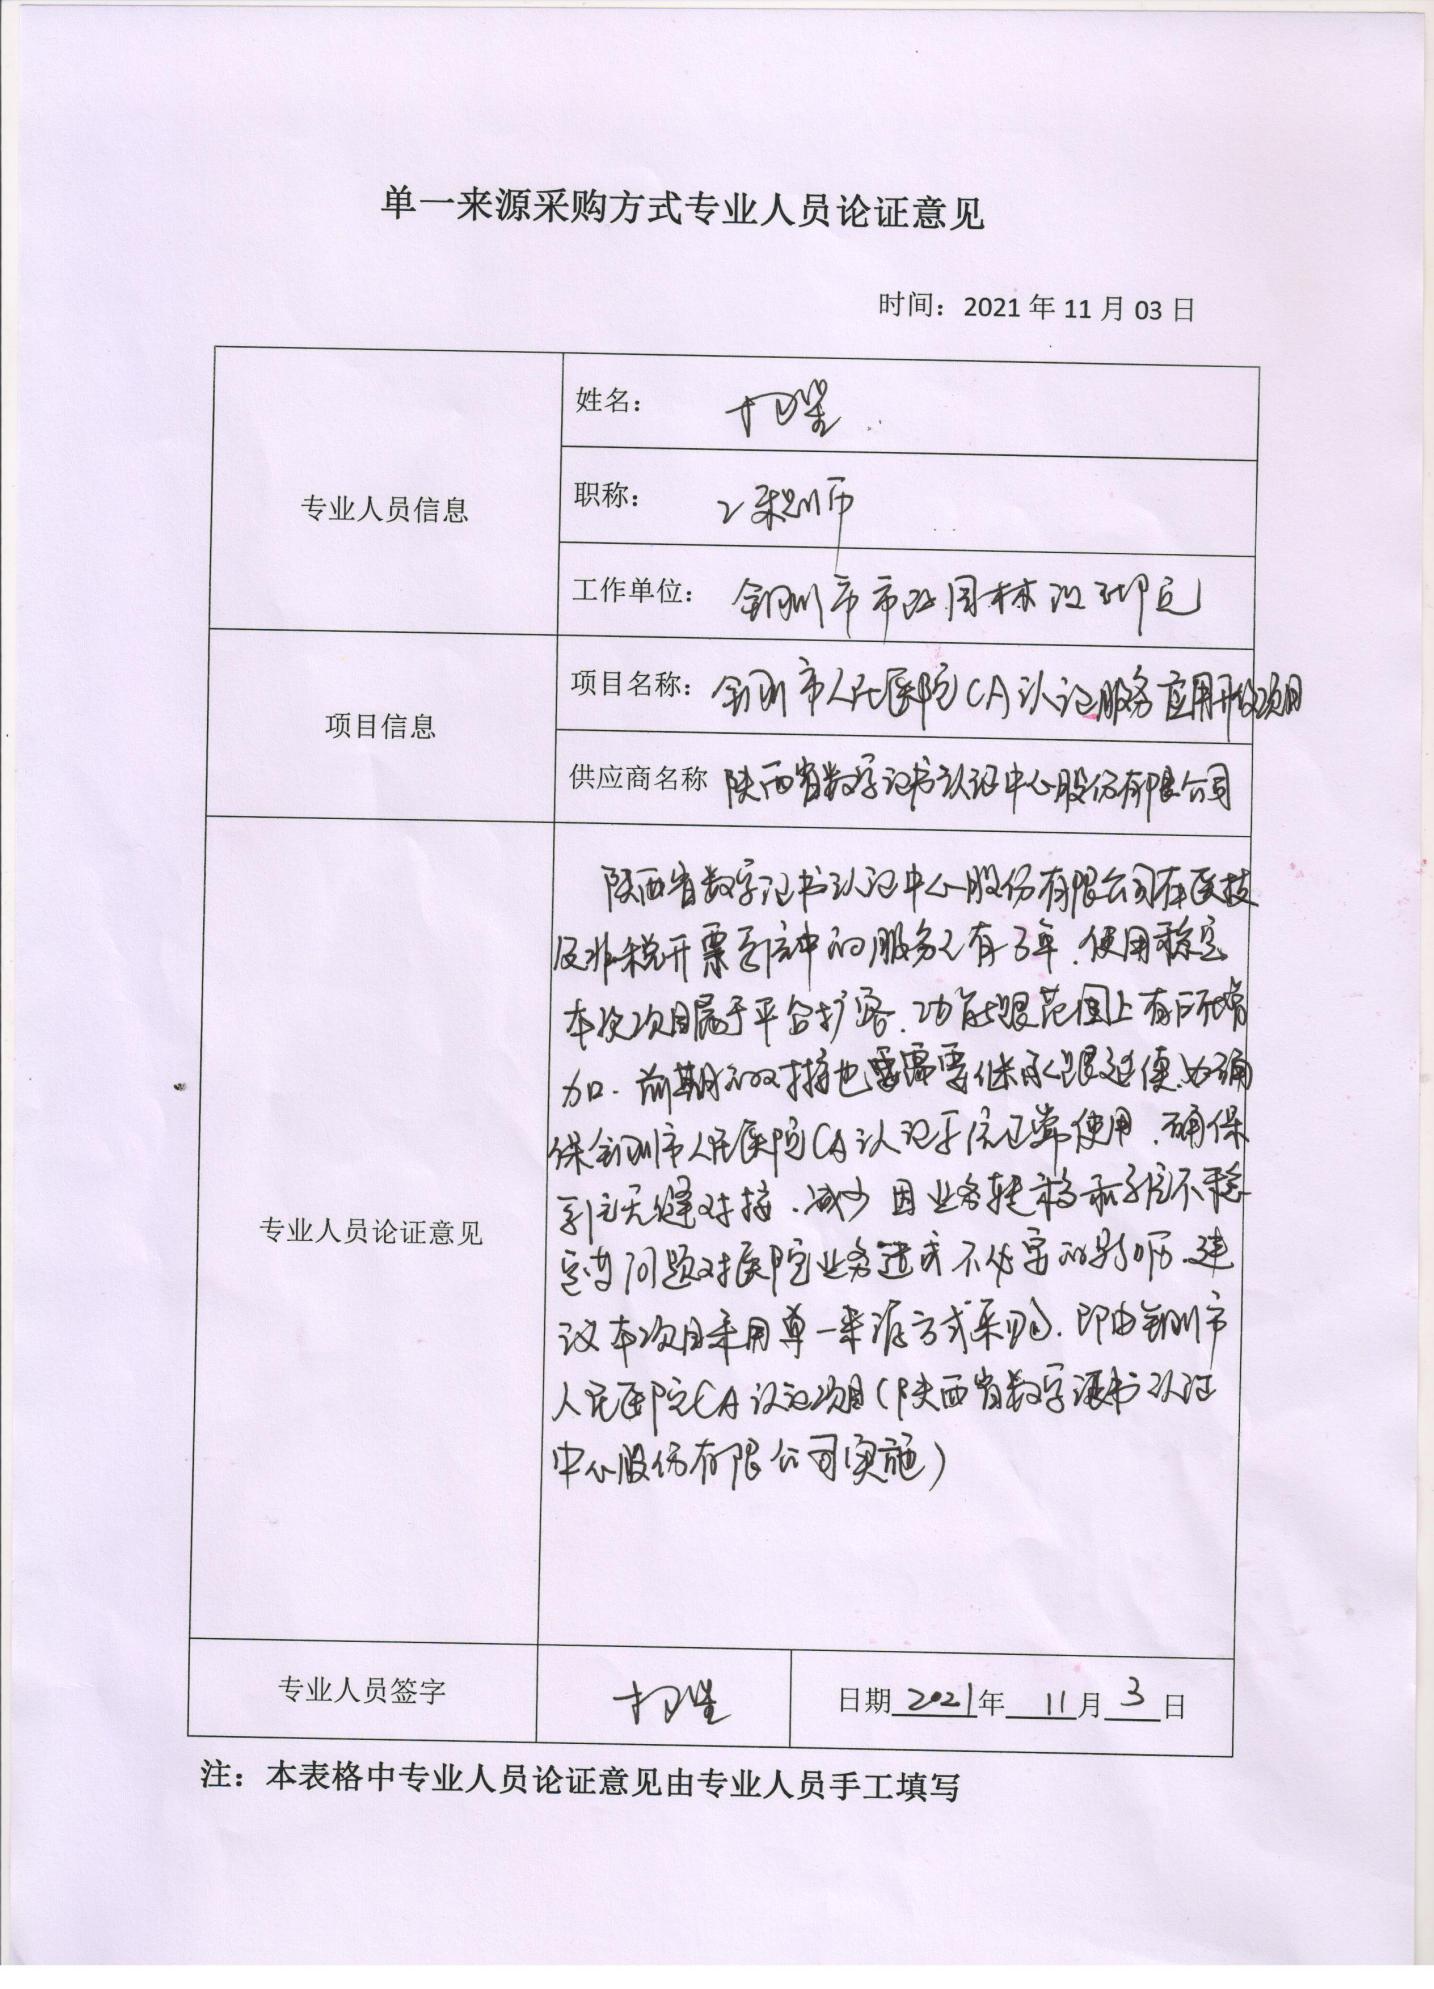 单一来源采购方式专业人员论证意见
时间：2021 年 11 月 03 日
专业人员信息
姓名：
职称：工程师
工作单位：铜川市市政园林设计院
项目信息
项目名称：铜川市人民医院CA认证服务应用开发项目
供应商名称 陕西省数字证书认证中心股份有限公司
专业人员论证意见
陕西省数字证书认证中心股份有限公司在医技
及非税开票系统中的服务已有3年，使用稳定
本次项目属于平台扩容，功能跟范围上有所增
加．前期的对接也需要继承跟延续，为确
保铜川市人民医院CA认证系统正常使用，确保
系统无缝对接，减少因业务转移和系统不稳
定等问题对医院业务造成不必要的影响，建
议本次项目采用单一来源方式采购，即由铜川市
人民医院CA认证项目（陕西省数字证书认证
中心股份有限公司实施）
专业人员签字
日期 2021 年 11 月 3 日
注：本表格中专业人员论证意见由专业人员手工填写